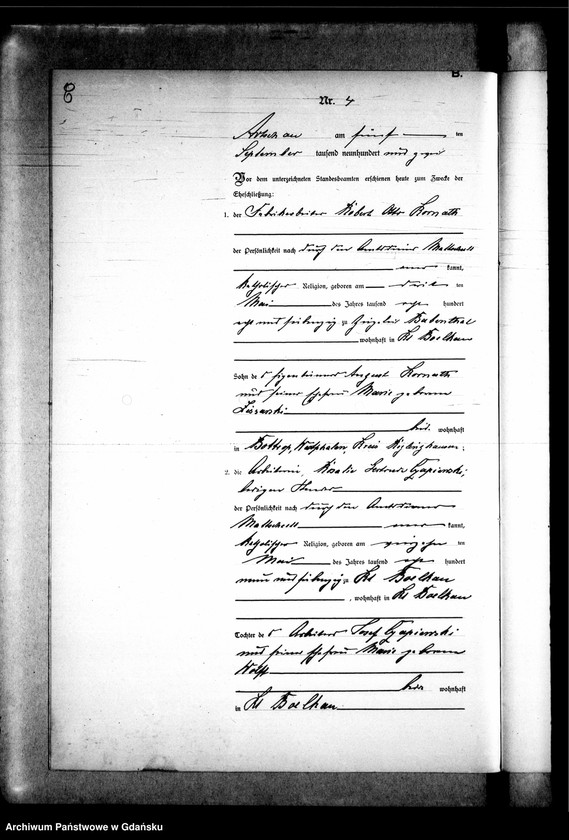 B.
Nr. 4
am fünf ten
September tausend neunhundert und zwei
Vor dem unterzeichneten Standesbeamten erschienen heute zum Zwecke der
Eheschließung:
1. der Fabrikarbeiter Robert Otto Kornath
der Persönlichkeit nach durch den Amtsdiener
kannt,
katholischer Religion, geboren am drei ten
Mai des Jahres tausend acht hundert
acht und siebenzig zu Babenthal
wohnhaft in Kl Boelkau
Sohn de s Eigentümers August Kornath
und seiner Ehefrau Marie geborene
beid. wohnhaft
in Bottrop, Westphalen, Kreis
2. die Arbeiterin, Rosalie Gertrude Czapiewski,
ledigen Standes
der Persönlichkeit nach durch den Amtsdiener
kannt,
katholischer Religion, geboren am vierzehn ten
Mai des Jahres tausend acht hundert
neun und siebenzig zu Kl Boelkau
, wohnhaft in Kl Boelkau
Tochter de s Arbeiters Josef Czapiewski
und seiner Ehefrau Marie geborene
Wolff
beide wohnhaft
in Kl Boelkau
Archiwum Państwowe w Gdańsku